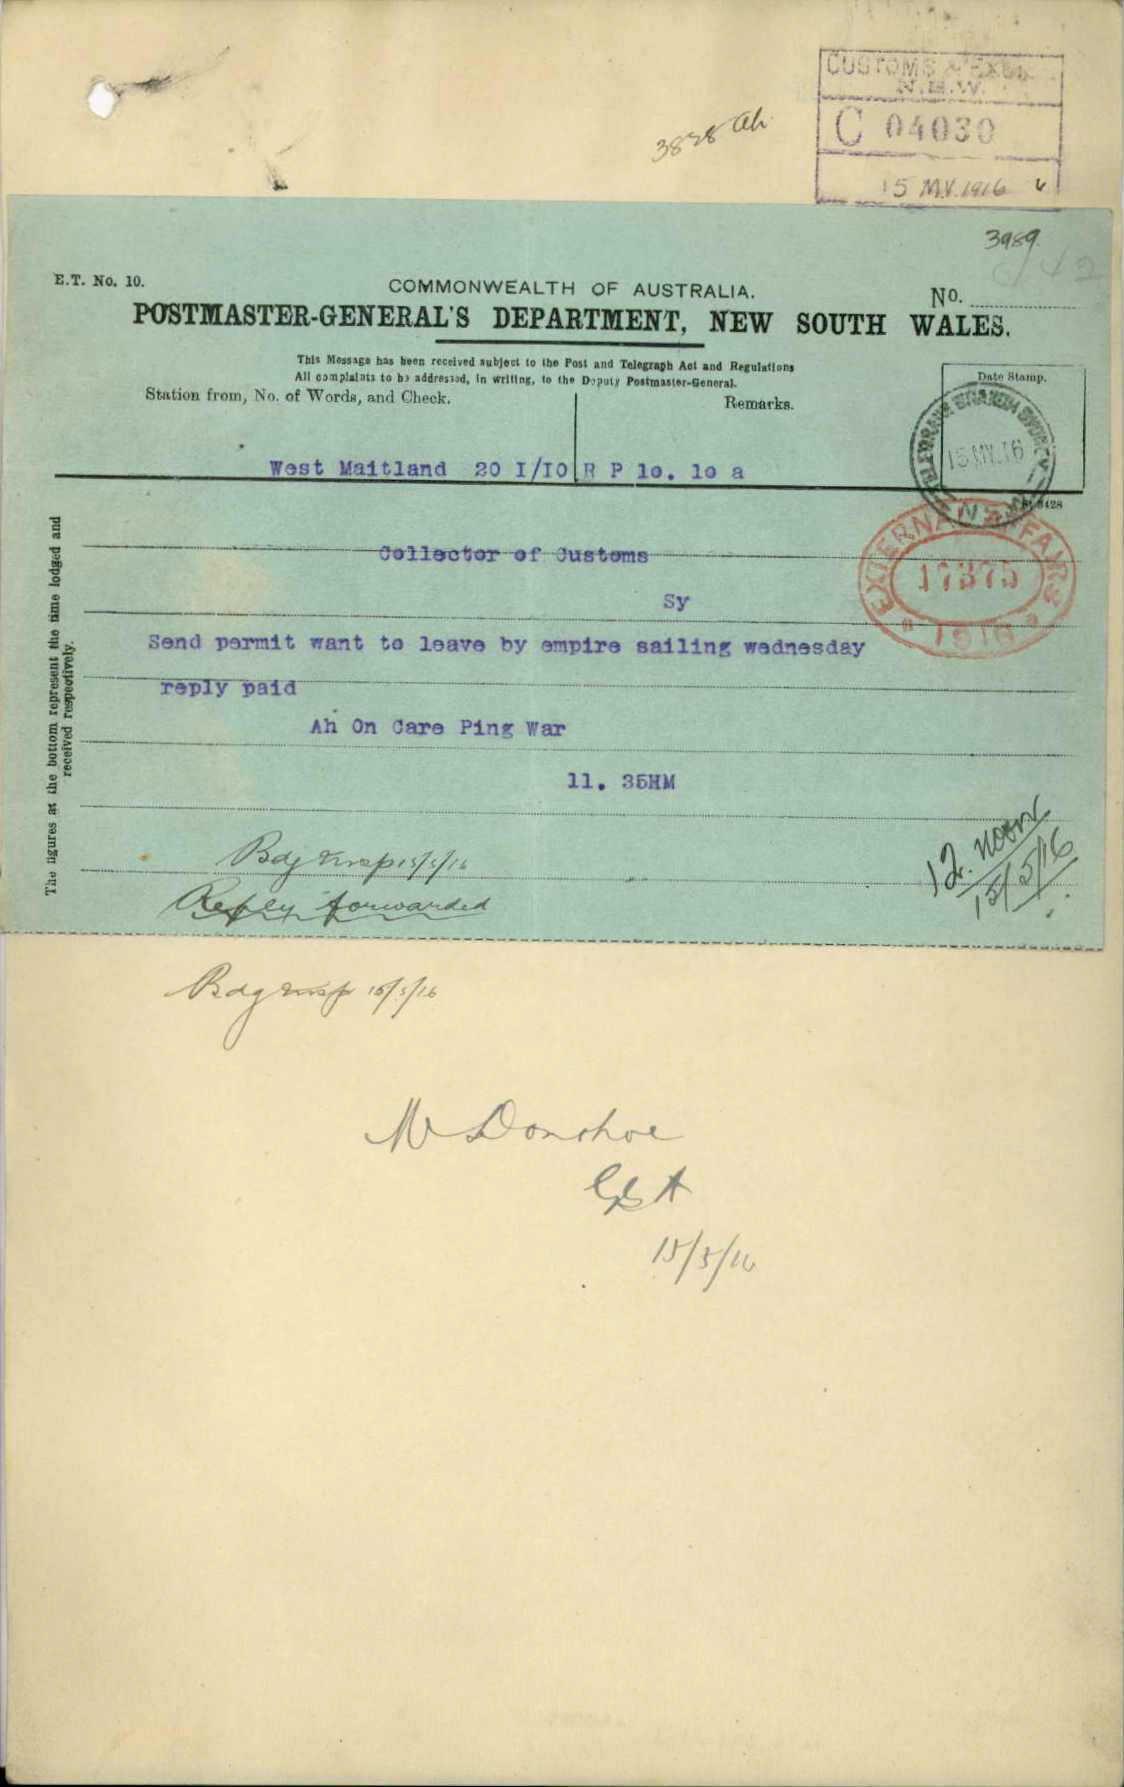 CUSTOMS & EXCISE
N.S.W.
C 04030
15 MY. 1916
3828 Ah
3989
E.T. No. 10.
COMMONWEALTH OF AUSTRALIA.
No.
POSTMASTER-GENERAL'S DEPARTMENT, NEW SOUTH WALES.
This Message has been received subject to the Post and Telegraph Act and Regulations
All complaints to be addressed, in writing, to the Deputy Postmaster-General.
Station from, No. of Words, and Check.
Remarks.
Date Stamp.
TELEGRAPH BRANCH SYDNEY
15 MY. 16
N.S.W.
West Maitland 20 I/IO R P 10. 10 a
Collector of Customs
Sy
EXTERNAL AFFAIRS
17375
1916
Send permit want to leave by empire sailing wednesday
reply paid
Ah On Care Ping War
11. 35HM
The figures at the bottom represent the time lodged and
received respectively.
12. noon
15/5/16
Bdg Insp 15/5/16
Reply forwarded
Bdg Insp 15/5/16
Mr Donohoe
15/5/16